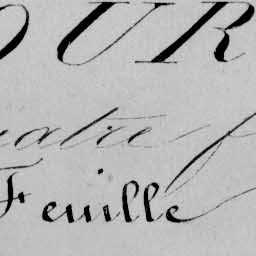 OUR
atre f
Feuille